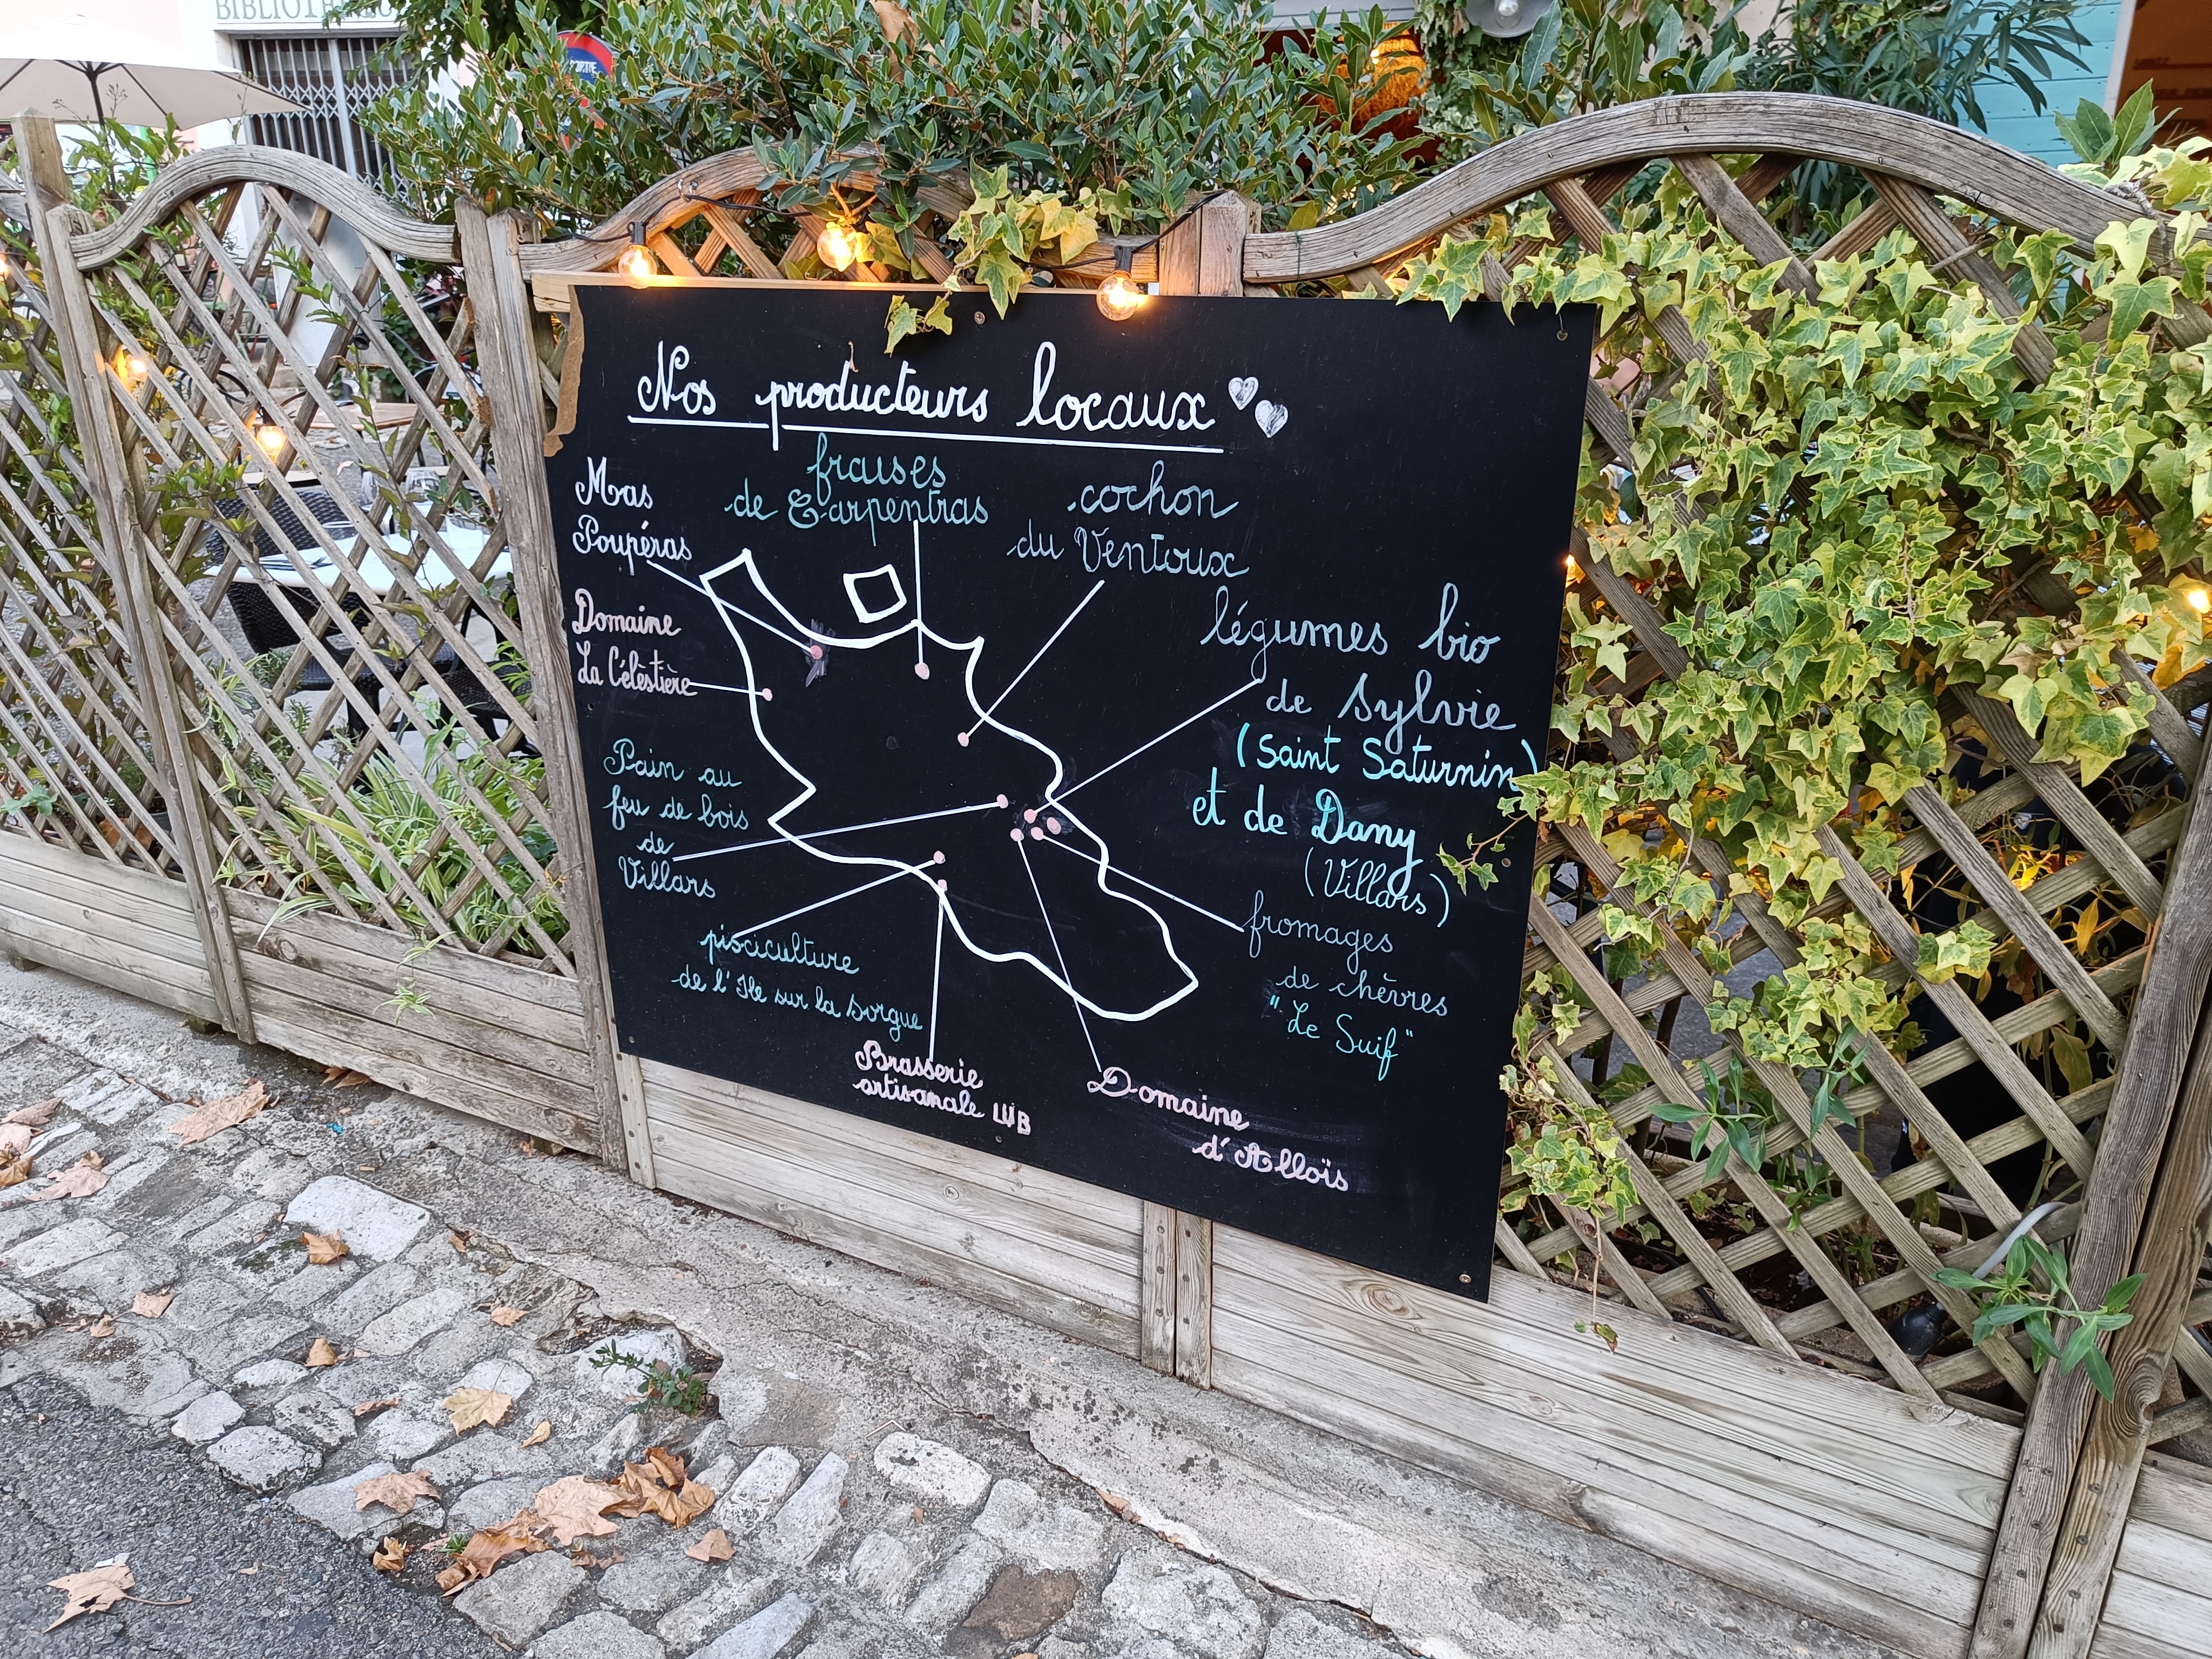 Nos producteurs locaux
Mas
Poupéras
fraises
de Carpentras
cochon
du Ventoux
Domaine
La Célèstière
légumes bio
de Sylvie
(Saint Saturnin)
et de Dany
(Villars)
Pain au
feu de bois
de
Villars
fromages
de chèvres
"Le Suif"
pisciculture
de l'Ile sur la Sorgue
Brasserie
artisanale LUB
Domaine
d'Alloïs